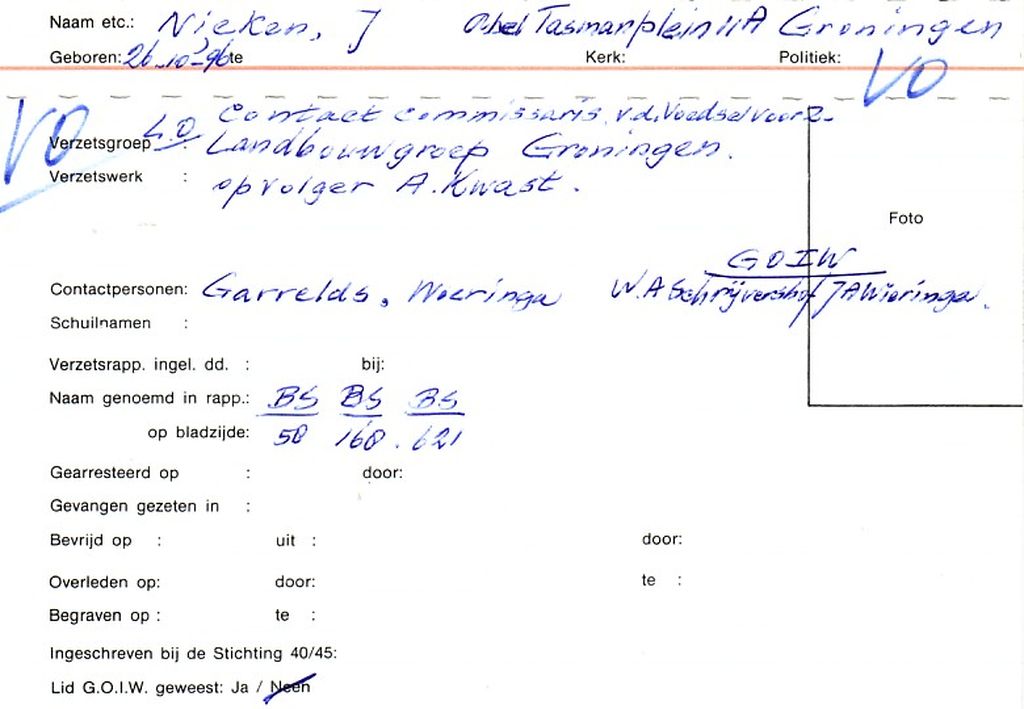 Naam etc.: Nieken, J Abel Tasmanplein 11A Groningen
Geboren: 26-10-'96 te Kerk: Politiek: VO
VO
L.O contact commissaris v.d. Voedselvoorz.
Verzetsgroep : Landbouwgroep Groningen.
Verzetswerk : opvolger A. Kwast.
Foto
GOIW
Contactpersonen: Garrelds, Wieringa W.A Schrijvershof JA Wieringa.
Schuilnamen :
Verzetsrapp. ingel. dd. : bij:
Naam genoemd in rapp.: BS BS BS
op bladzijde: 50 160. 621
Gearresteerd op : door:
Gevangen gezeten in :
Bevrijd op : uit : door:
Overleden op: door: te :
Begraven op : te :
Ingeschreven bij de Stichting 40/45:
Lid G.O.I.W. geweest: Ja / Neen